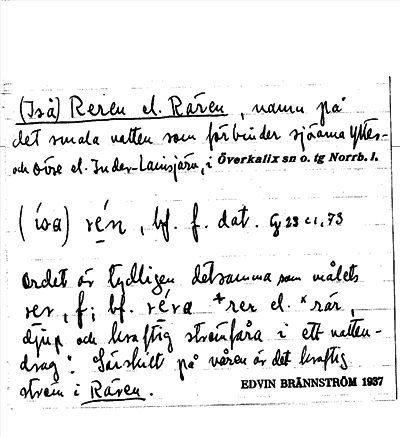 (Iså) Reren el. Rären, namn på
det smala vatten som förbinder sjöarna Yttes-
och övre el. Inder-Lansjärv, i Överkalix sn o. tg Norrb. l.
(íσa) rén, bf. f. dat. Cg 23 c 1, 73
Ordet är tydligen detsamma som målets
rer, f; bf. réra *rer el. *rär,
djup och kraftig strömfåra i ett vatten-
drag: Särskilt på våren är det kraftig
ström i Rären. EDVIN BRÄNNSTRÖM 1937